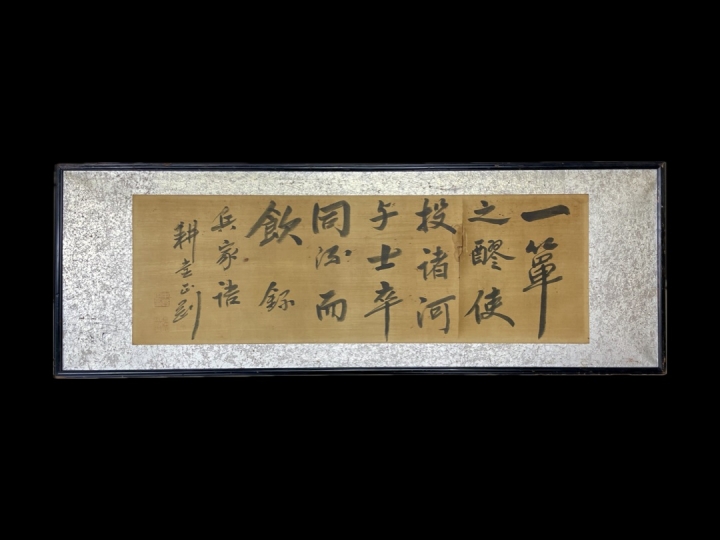 一簞
之醪使
投諸河
与士卒
同流而
飲 錄
兵家語
耕堂正